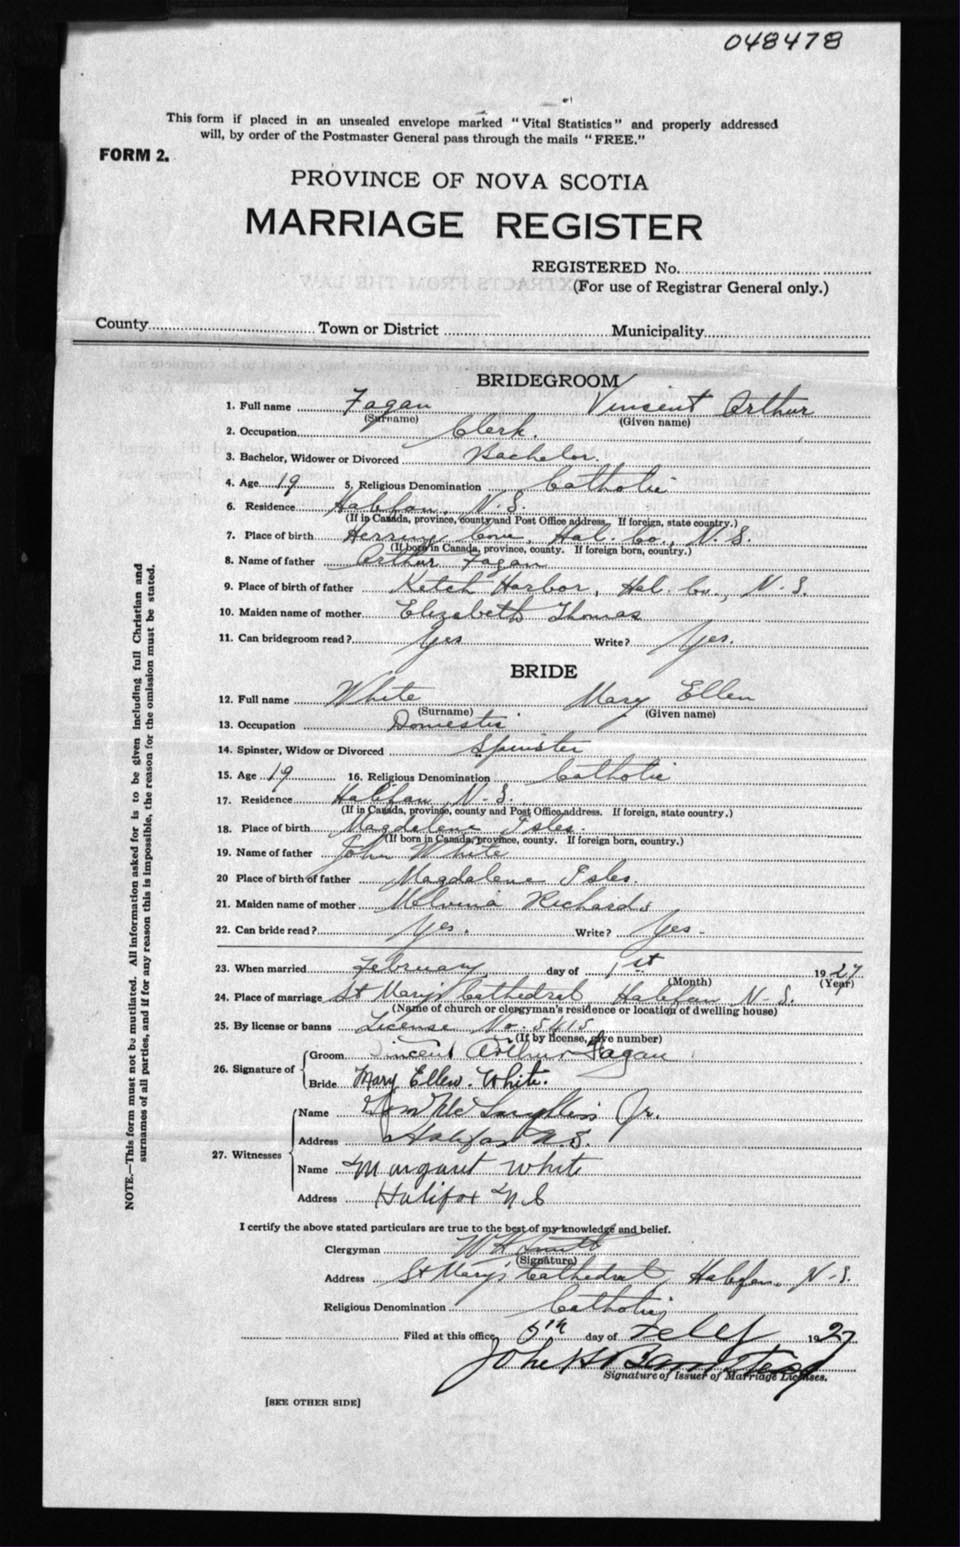 048478
This form if placed in an unsealed envelope marked "Vital Statistics" and properly addressed
will, by order of the Postmaster General pass through the mails "FREE."
FORM 2.
PROVINCE OF NOVA SCOTIA
MARRIAGE REGISTER
REGISTERED No.
(For use of Registrar General only.)
County Town or District Municipality
BRIDEGROOM
1. Full name Fagan Vincent Arthur
(Surname) (Given name)
2. Occupation Clerk.
3. Bachelor, Widower or Divorced Bachelor.
4. Age 19 5. Religious Denomination Catholic
6. Residence Halifax, N.S.
(If in Canada, province, county and Post Office address. If foreign, state country.)
7. Place of birth Herring Cove, Hal. Co., N.S.
(If born in Canada, province, county. If foreign born, country.)
8. Name of father Arthur Fagan
9. Place of birth of father Ketch Harbor, Hal. Co., N.S.
10. Maiden name of mother Elizabeth Thomas
11. Can bridegroom read? Yes Write? Yes.
BRIDE
12. Full name White Mary Ellen
(Surname) (Given name)
13. Occupation Domestic
14. Spinster, Widow or Divorced Spinster
15. Age 19 16. Religious Denomination Catholic
17. Residence Halifax N.S.
(If in Canada, province, county and Post Office address. If foreign, state country.)
18. Place of birth Magdalene Isles.
(If born in Canada, province, county. If foreign born, country.)
19. Name of father John White
20 Place of birth of father Magdalene Isles.
21. Maiden name of mother Melvina Richards
22. Can bride read? Yes. Write? Yes.
23. When married February day of 1st 1927
(Month) (Year)
24. Place of marriage St Mary's Cathedral, Halifax N.S.
(Name of church or clergyman's residence or location of dwelling house)
25. By license or banns License No. 5415
(If by license, give number)
26. Signature of Groom Vincent Arthur Fagan
Bride Mary Ellen White.
27. Witnesses Name Jr.
Address Halifax N.S.
Name Margaret White
Address Halifax N S
I certify the above stated particulars are true to the best of my knowledge and belief.
Clergyman W H Smith
(Signature)
Address St Mary's Cathedral, Halifax, N.S.
Religious Denomination Catholic
Filed at this office 5th day of Feby 1927
John H Barnstead
Signature of Issuer of Marriage Licenses.
[SEE OTHER SIDE]
NOTE.—This form must not be mutilated. All information asked for is to be given including full Christian and
surnames of all parties, and if for any reason this is impossible, the reason for the omission must be stated.